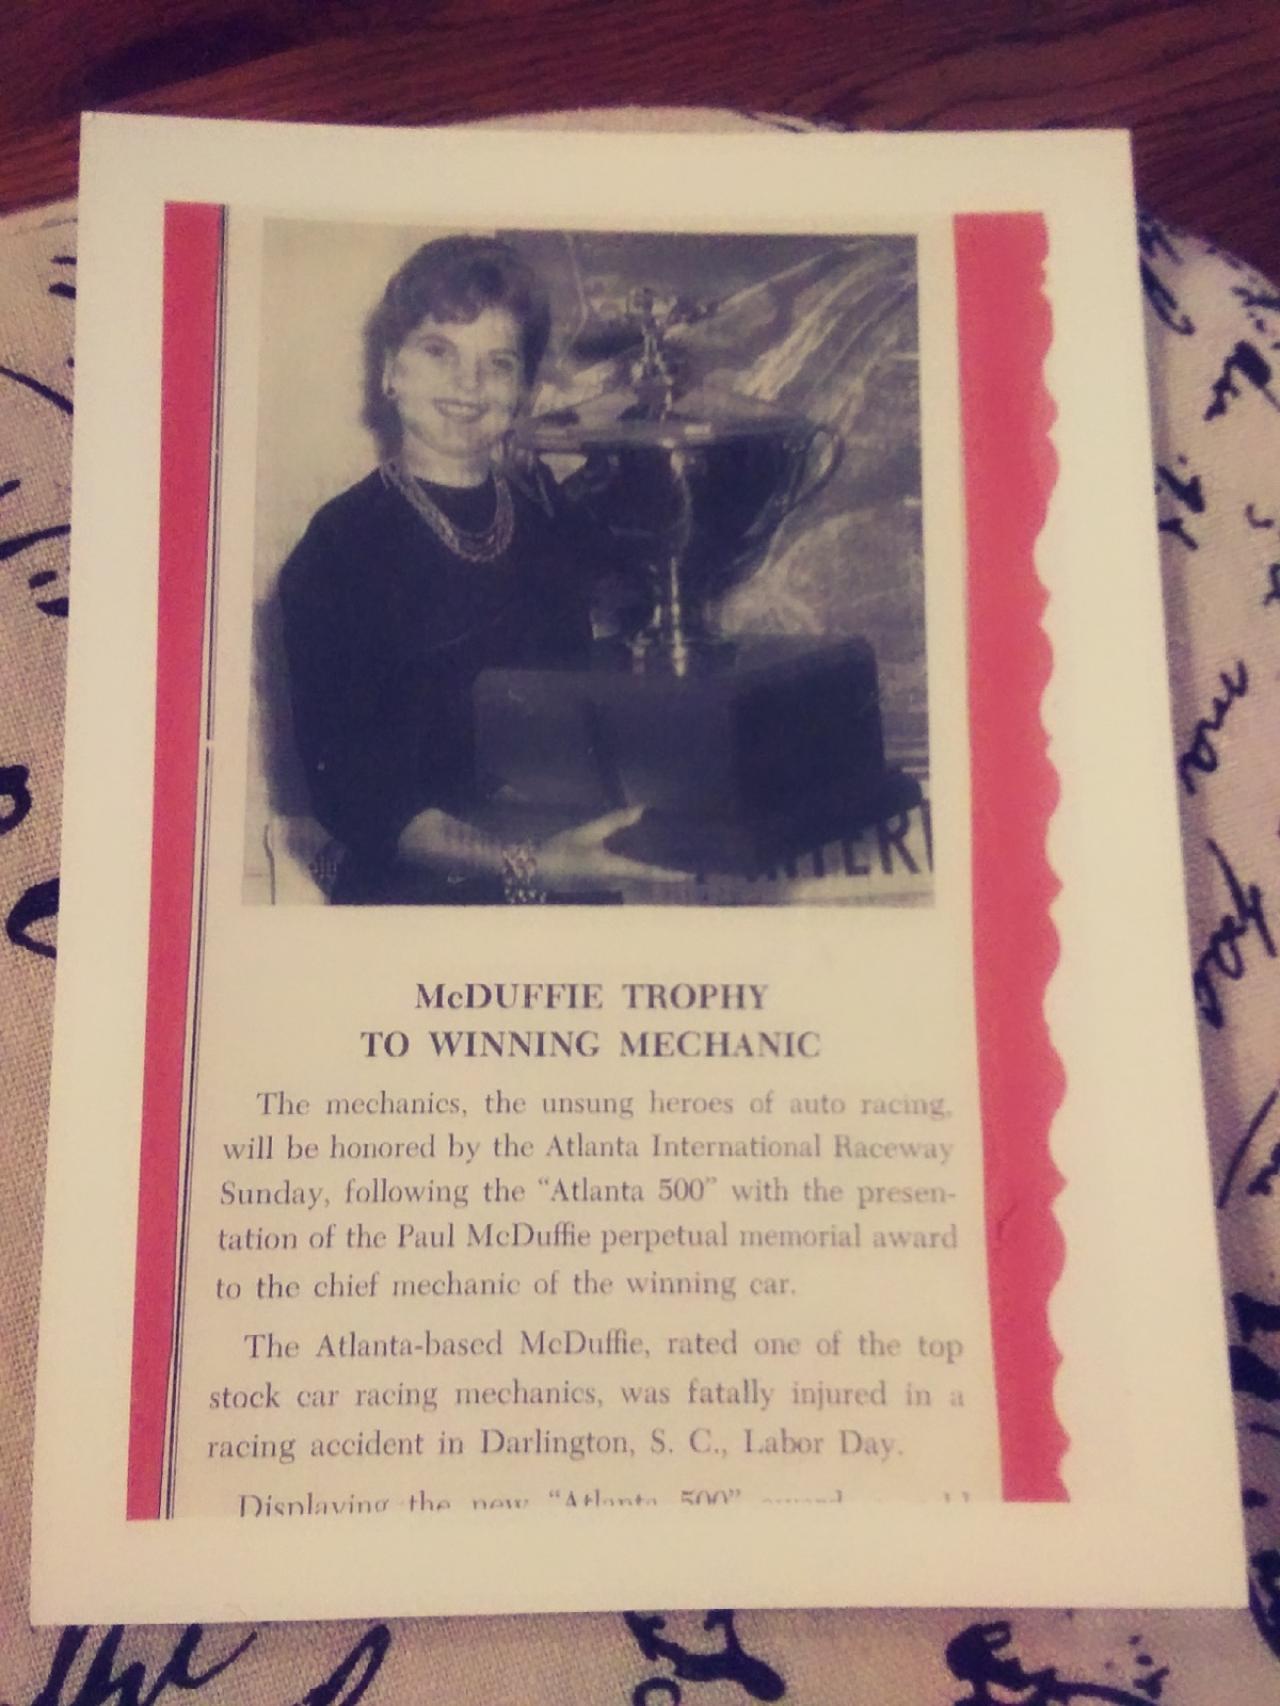 McDUFFIE TROPHY
TO WINNING MECHANIC
The mechanics, the unsung heroes of auto racing,
will be honored by the Atlanta International Raceway
Sunday, following the “Atlanta 500” with the presen-
tation of the Paul McDuffie perpetual memorial award
to the chief mechanic of the winning car.
The Atlanta-based McDuffie, rated one of the top
stock car racing mechanics, was fatally injured in a
racing accident in Darlington, S. C., Labor Day.
Displaying the new “Atlanta 500” award